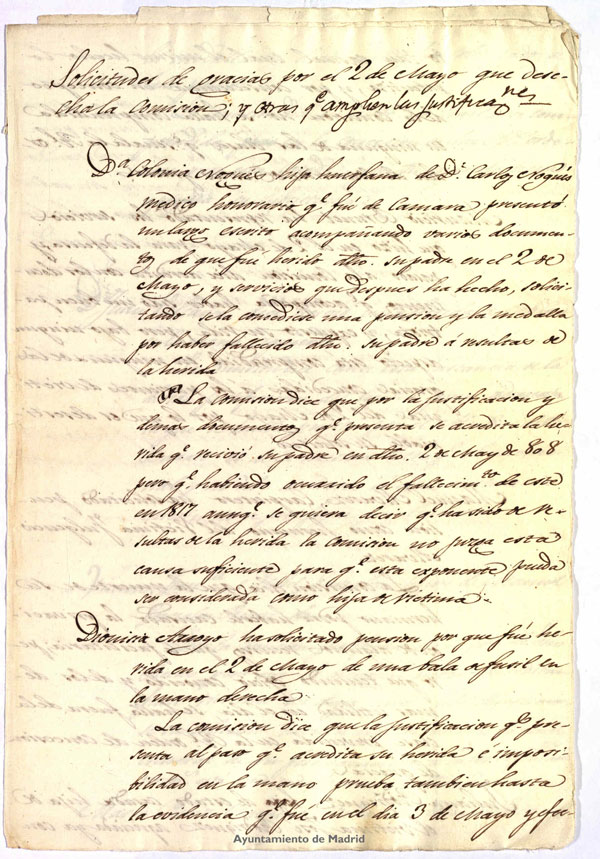 Solicitudes de gracias por el 2 de Mayo que dese-
cha la Comision; y otras q.e amplien las justificanes
D.a Colonia Nogués hija huerfana de D.n Carlos Nogués
medico honorario q.e fué de Camara presentó
un largo escrito acompañando varios documen-
tos de que fue herido dho. su padre en el 2 de
Mayo, y servicios que despues ha hecho, solici-
tando se la concediese una pension y la medalla
por haber fallecido dho. su padre á resultas de
la herida
La Comision dice que por la justificacion y
demas documentos q.e presenta se acredita la he-
rida q.e recivió su padre en dho. 2 de May de 808
pero q.e habiendo ocurrido el fallecim.to de este
en 1817 aunq.e se quiera decir q.e ha sido de re-
sultas de la herida la comision no juzga esta
causa suficiente para q.e esta exponente pueda
ser considerada como hija de victima.
Dionisia Arroyo ha solicitado pension por que fué he-
rida en el 2 de Mayo de una bala de fusil en
la mano derecha
La comision dice que la justificacion q.e pre-
senta al paso q.e acredita su herida é imposi-
bilidad en la mano prueba tambien hasta
la evidencia q.e fué en el dia 3 de Mayo y
Ayuntamiento de Madrid